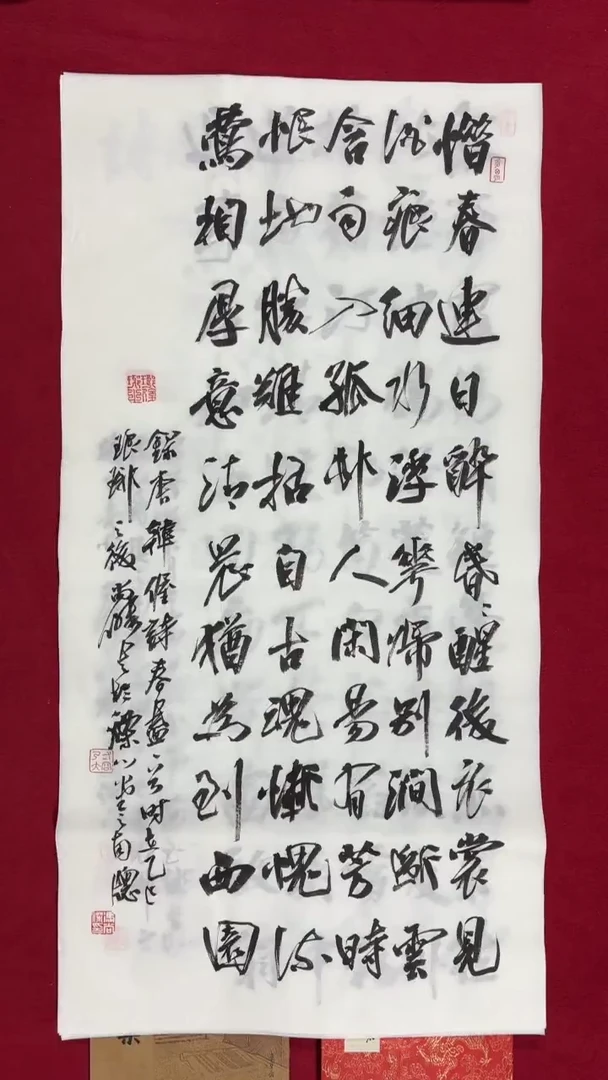 惜春連日醉昏〻醒後衣裳見
酒痕細水浮華歸別澗斷雲
含雨入孤邨人閑易有芳時
恨地勝難招自古魂慚愧流
鶯相厚意清晨猶為到西園
錄唐韓偓詩春盡一首時在乙巳
琅琊之後南牕